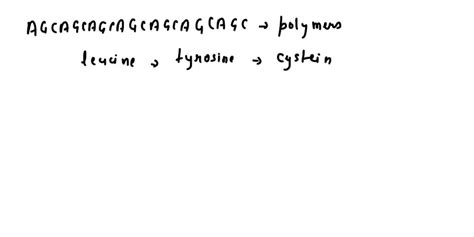 AGCAGCAGCAGCAGCAGCAGCAGC → polymers
leucine → tyrosine → cystein